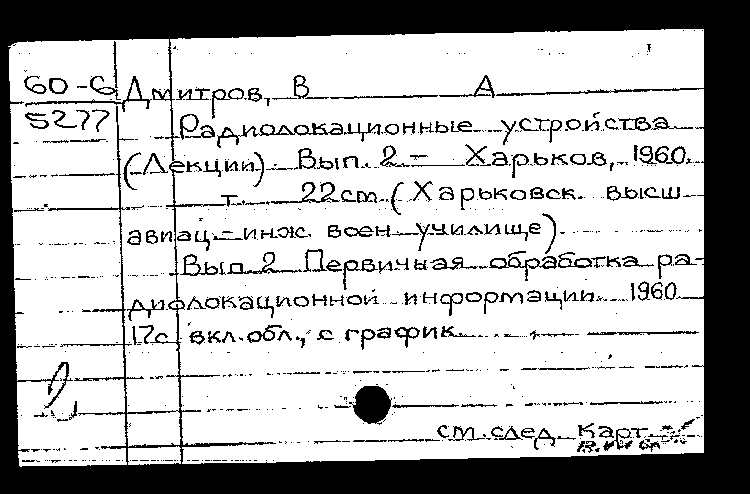 60-6 Дмитров, В А
5277
Радиолокационные устройства
(Лекции). Вып. 2 – Харьков, 1960.
т. 22cm. (Харьковск. высш
авиац.-инж. воен училище).
Вып. 2 Первичная обработка ра-
диолокационной информации. 1960
17с вкл. обл., с график.
см. след. Карт.